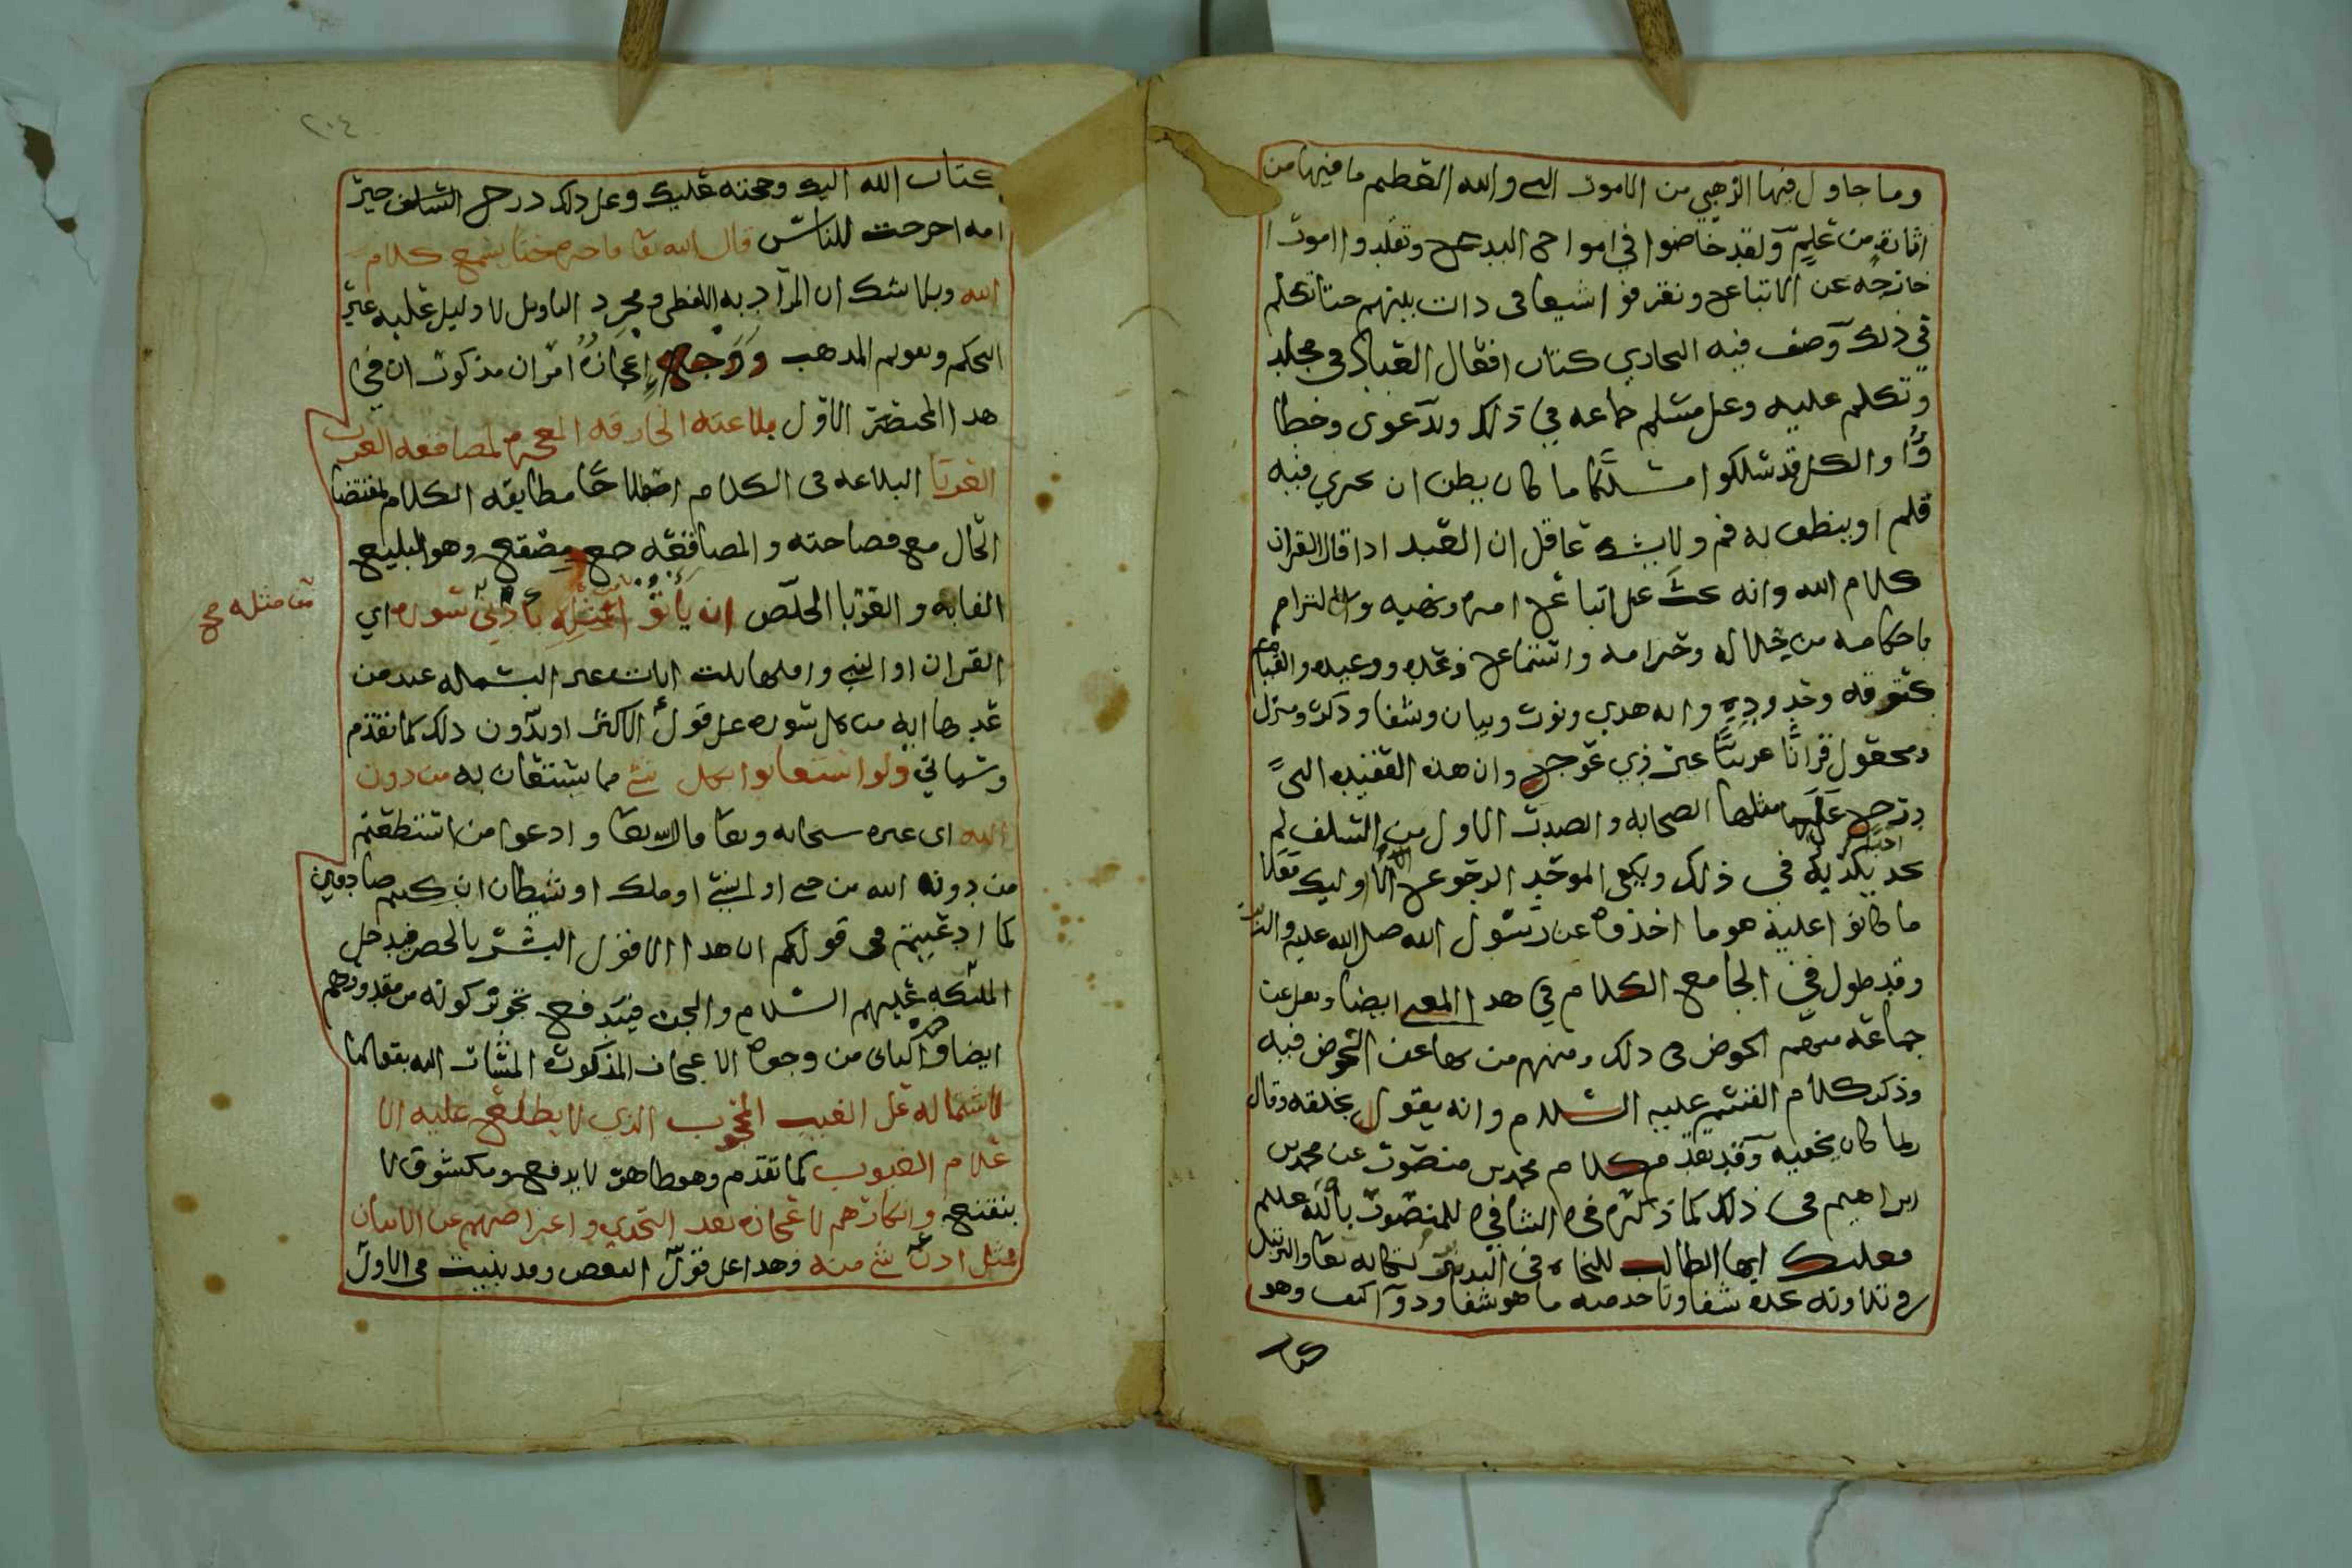 وما جاول فيها الذهبي من الامور التي والله العظيم ما فيها من
اثارة من علم ولقد خاضوا في امواج البدع وتقلدوا امورا
خارجه عن الاتباع وتفرقوا شيعا في ذات بينهم حتا تكلم
في ذلك وصنف فيه البخاري كتاب افعال العباد في مجلد
وتكلم عليه وعلى مسلم جماعه في ذلك وبدعوى وخطا
والكل قد سلكوا مسلكا ما كان يظن ان يجري فيه
قلم او ينطق به فم ولا يشك عاقل ان العبد اذا قال القران
كلام الله وانه يحث على اتباع امره ونهيه والالتزام
باحكامه من حلاله وحرامه واستماع وعده ووعيده والقيام
بحقوقه وحدوده وانه هدى ونور وبيان وشفا وذكر ومنزل
ومجعول قرانا عربيا غير ذي عوج وان هذه العقيده التي
درج على مثلها الصحابه والصدر الاول من السلف لم
احد بكذبه في ذلك ويكفي الموحد الرجوع الى اوليك فعلا
ما كانوا عليه هو ما اخذوه عن رسول الله صلى الله عليه واله
وقد طول في الجامع الكلام في هذا المعنى ايضا ونقل عن
جماعة منهم الخوض في ذلك ومنهم من نها عن الخوض فيه
وذكر كلام القسم عليه السلام وانه يقول بخلقه وقال
ربما كان يخفيه وقد تقدم كلام محمد بن منصور عن محمد بن
ابراهيم في ذلك كما ذكره في الشافي للمنصور بالله عليلم
فعليك ايها الطالب للنجاه في التدبر لكتابه تعا والترتيل
في تلاوته تجده شفا وتاخذ منه ما هو شفا ودوآ كيف وهو
كتاب
٢٠٤
كتاب الله اليك وحجته عليك وعلى ذلك درج السلف خير
امه اخرجت للناس قال الله تعا فاجره حتا يسمع كلام
الله وبلا شك ان المراد به اللفظي ومجرد التاويل لا دليل عليه غير
التحكم وتقويم المذهب ووجه إعجازه امران مذكوران في
هذا المختصر الاول بلاغته الخارقه المعجزه لمصاقعه العرب
العربا البلاغه في الكلام اصطلاحا مطابقه الكلام لمقتضا
الحال مع فصاحته والمصاقعه جمع مصقع وهو البليغ
الغايه والعربا الخلص ان يأتوا بمثله بأدنى سوره اي
من مثله صح
القران او النبي واقلها ثلث ايات غير البسمله عند من
عدها ايه من كل سوره على قول الاكثر او بدون ذلك كما تقدم
وسياتي ولو استعانوا بكل شئ مما يستعان به من دون
الله اي غيره سبحانه وتعا قال الله تعا وادعوا من استطعتم
من دونه الله من جني او انسي او ملك او شيطان ان كنتم صادقين
كما ادعيتم في قولكم ان هذا الا قول البشر بالحصر فيدخل
الملئكه عليهم السلام والجن فيندفع تجويز كونه من مقدورهم
ايضا والثاني من وجوه الاعجاز المذكوره المشار اليه بقولنا
لاشتماله على الغيب المحجوب الذي لا يطلع عليه الا
علام الغيوب كما تقدم وهو ظاهر لا يدفع ومكشوف لا
يتقنع وانكارهم لاعجازه بعد التحدي واعراضهم عن الاتيان
بمثل ادنى شئ منه وهذا على قول البعض وقد بنيت في الاول